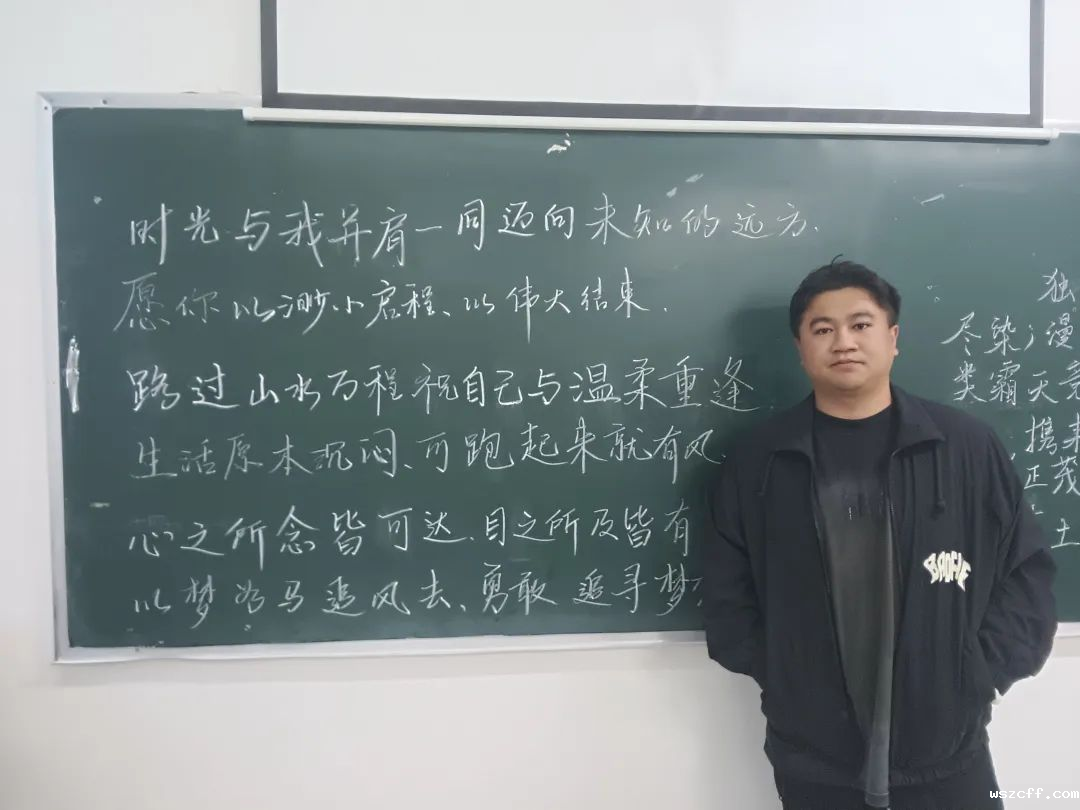 时光与我并肩一同迈向未知的远方.
愿你以渺小启程、以伟大结束.
跨过山水万程祝自己与温柔重逢
生活原本沉闷、可跑起来就有风.
心之所念皆可达.目之所及皆有
以梦为马追风去、勇敢追寻梦
独
尽染;漫
类霸天竞
携来
正茂
土
wszcff.com